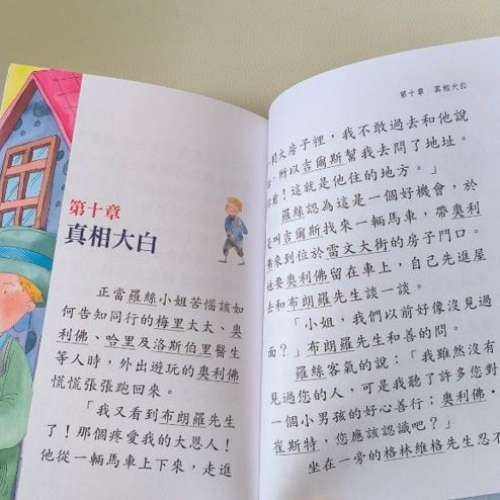 第十章
真相大白
正當羅絲小姐苦惱該如
何告知同行的梅里太太、奧
利佛、哈里及洛斯伯里醫生
等人時，外出遊玩的奧利佛
慌慌張張跑回來。
「我又看到布朗羅先生
了！那個疼愛我的大恩人！
他從一輛馬車上下來，走進
第十章 真相大白
大房子裡，我不敢過去和他說
所以吉爾斯幫我去問了地址。
！這就是他住的地方。」
羅絲認為這是一個好機會，於
叫吉爾斯找來一輛馬車，帶奧利
來到位於雷文大街的房子門口。
要奧利佛留在車上，自己先進屋
去和布朗羅先生談一談。
「小姐，我們以前好像沒見過
面？」布朗羅先生和善的問。
羅絲客氣的說：「我雖然沒有
見過您的人，可是我聽了許多您對
一個小男孩的好心善行；奧利佛．
崔斯特，您應該認識吧？」
坐在一旁的格林維格先生忍不